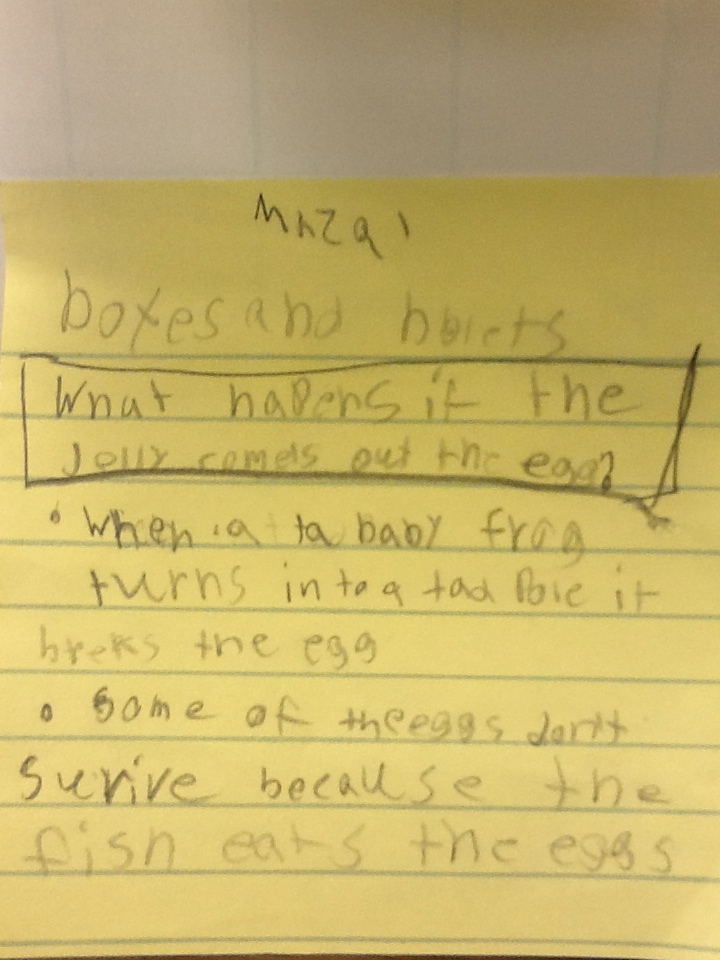 boxes and
What hapens if the
Jelly comels out the egg?
• When a ta baby frog
turns into a tad Pole it
breks the egg
• Some of the eggs don't
Surive because the
fish eats the eggs